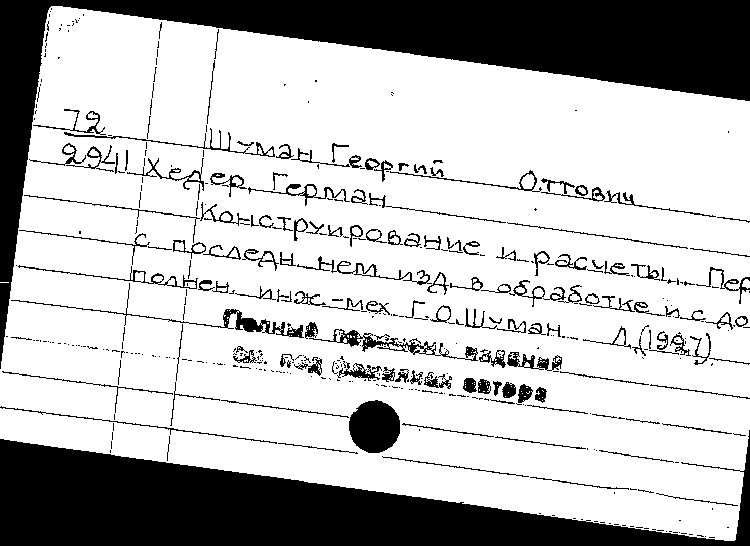 72
2941
Шуман, Георгий Оттович
Хедер, Герман
Конструирование и расчеты... Пер
с последн. нем. изд. в обработке и с до
полнен. инж.-мех. Г.О.Шуман. Л.(1927).
Полный перечень изданий
см. под фамилией автора